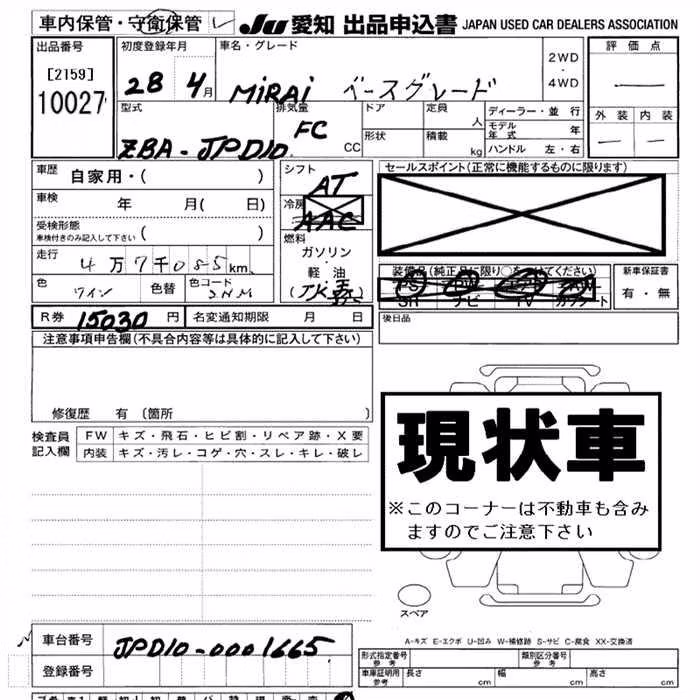 車内保管・守衛保管 ✓ JU 愛知 出品申込書 JAPAN USED CAR DEALERS ASSOCIATION
出品番号 初度登録年月 車名・グレード 2WD 評価点
[2159] 28 4月 MIRAI ベースグレード ・ 4WD —
10027 型式 排気量 ドア 定員 人 ディーラー・並行 外装 内装
ZBA-JPD10 FC CC 形状 積載 kg モデル年式 年 — —
ハンドル 左・右
車歴 自家用・( ) シフト AT セールスポイント(正常に機能するものに限ります)
車検 年 月( 日) 冷房 AAC
受検形態 ( )
車検付きのみ記入して下さい
燃料
ガソリン
走行 4万7千085km 軽油 装備品(純正品に限り○をつけてください) 新車保証書
色 ワイン 色替 色コード 3NM PS PW AW 有・無
SR ナビ TV カワシート
R券 15030円 名変通知期限 月 日 後日品
注意事項申告欄(不具合内容等は具体的に記入して下さい)
修復歴 有 〔箇所 〕
検査員記入欄 FW キズ・飛石・ヒビ割・リペア跡・X要
内装 キズ・汚レ・コゲ・穴・スレ・キレ・破レ
現状車
※このコーナーは不動車も含み
ますのでご注意下さい
スペア
A-キズ E-エクボ U-凹み W-補修跡 S-サビ C-腐食 XX-交換済
車台番号 JPD10-0001665
登録番号
形式指定番号 参考 類別区分番号 参考
車庫証明用 参考 長さ cm 幅 cm 高さ cm